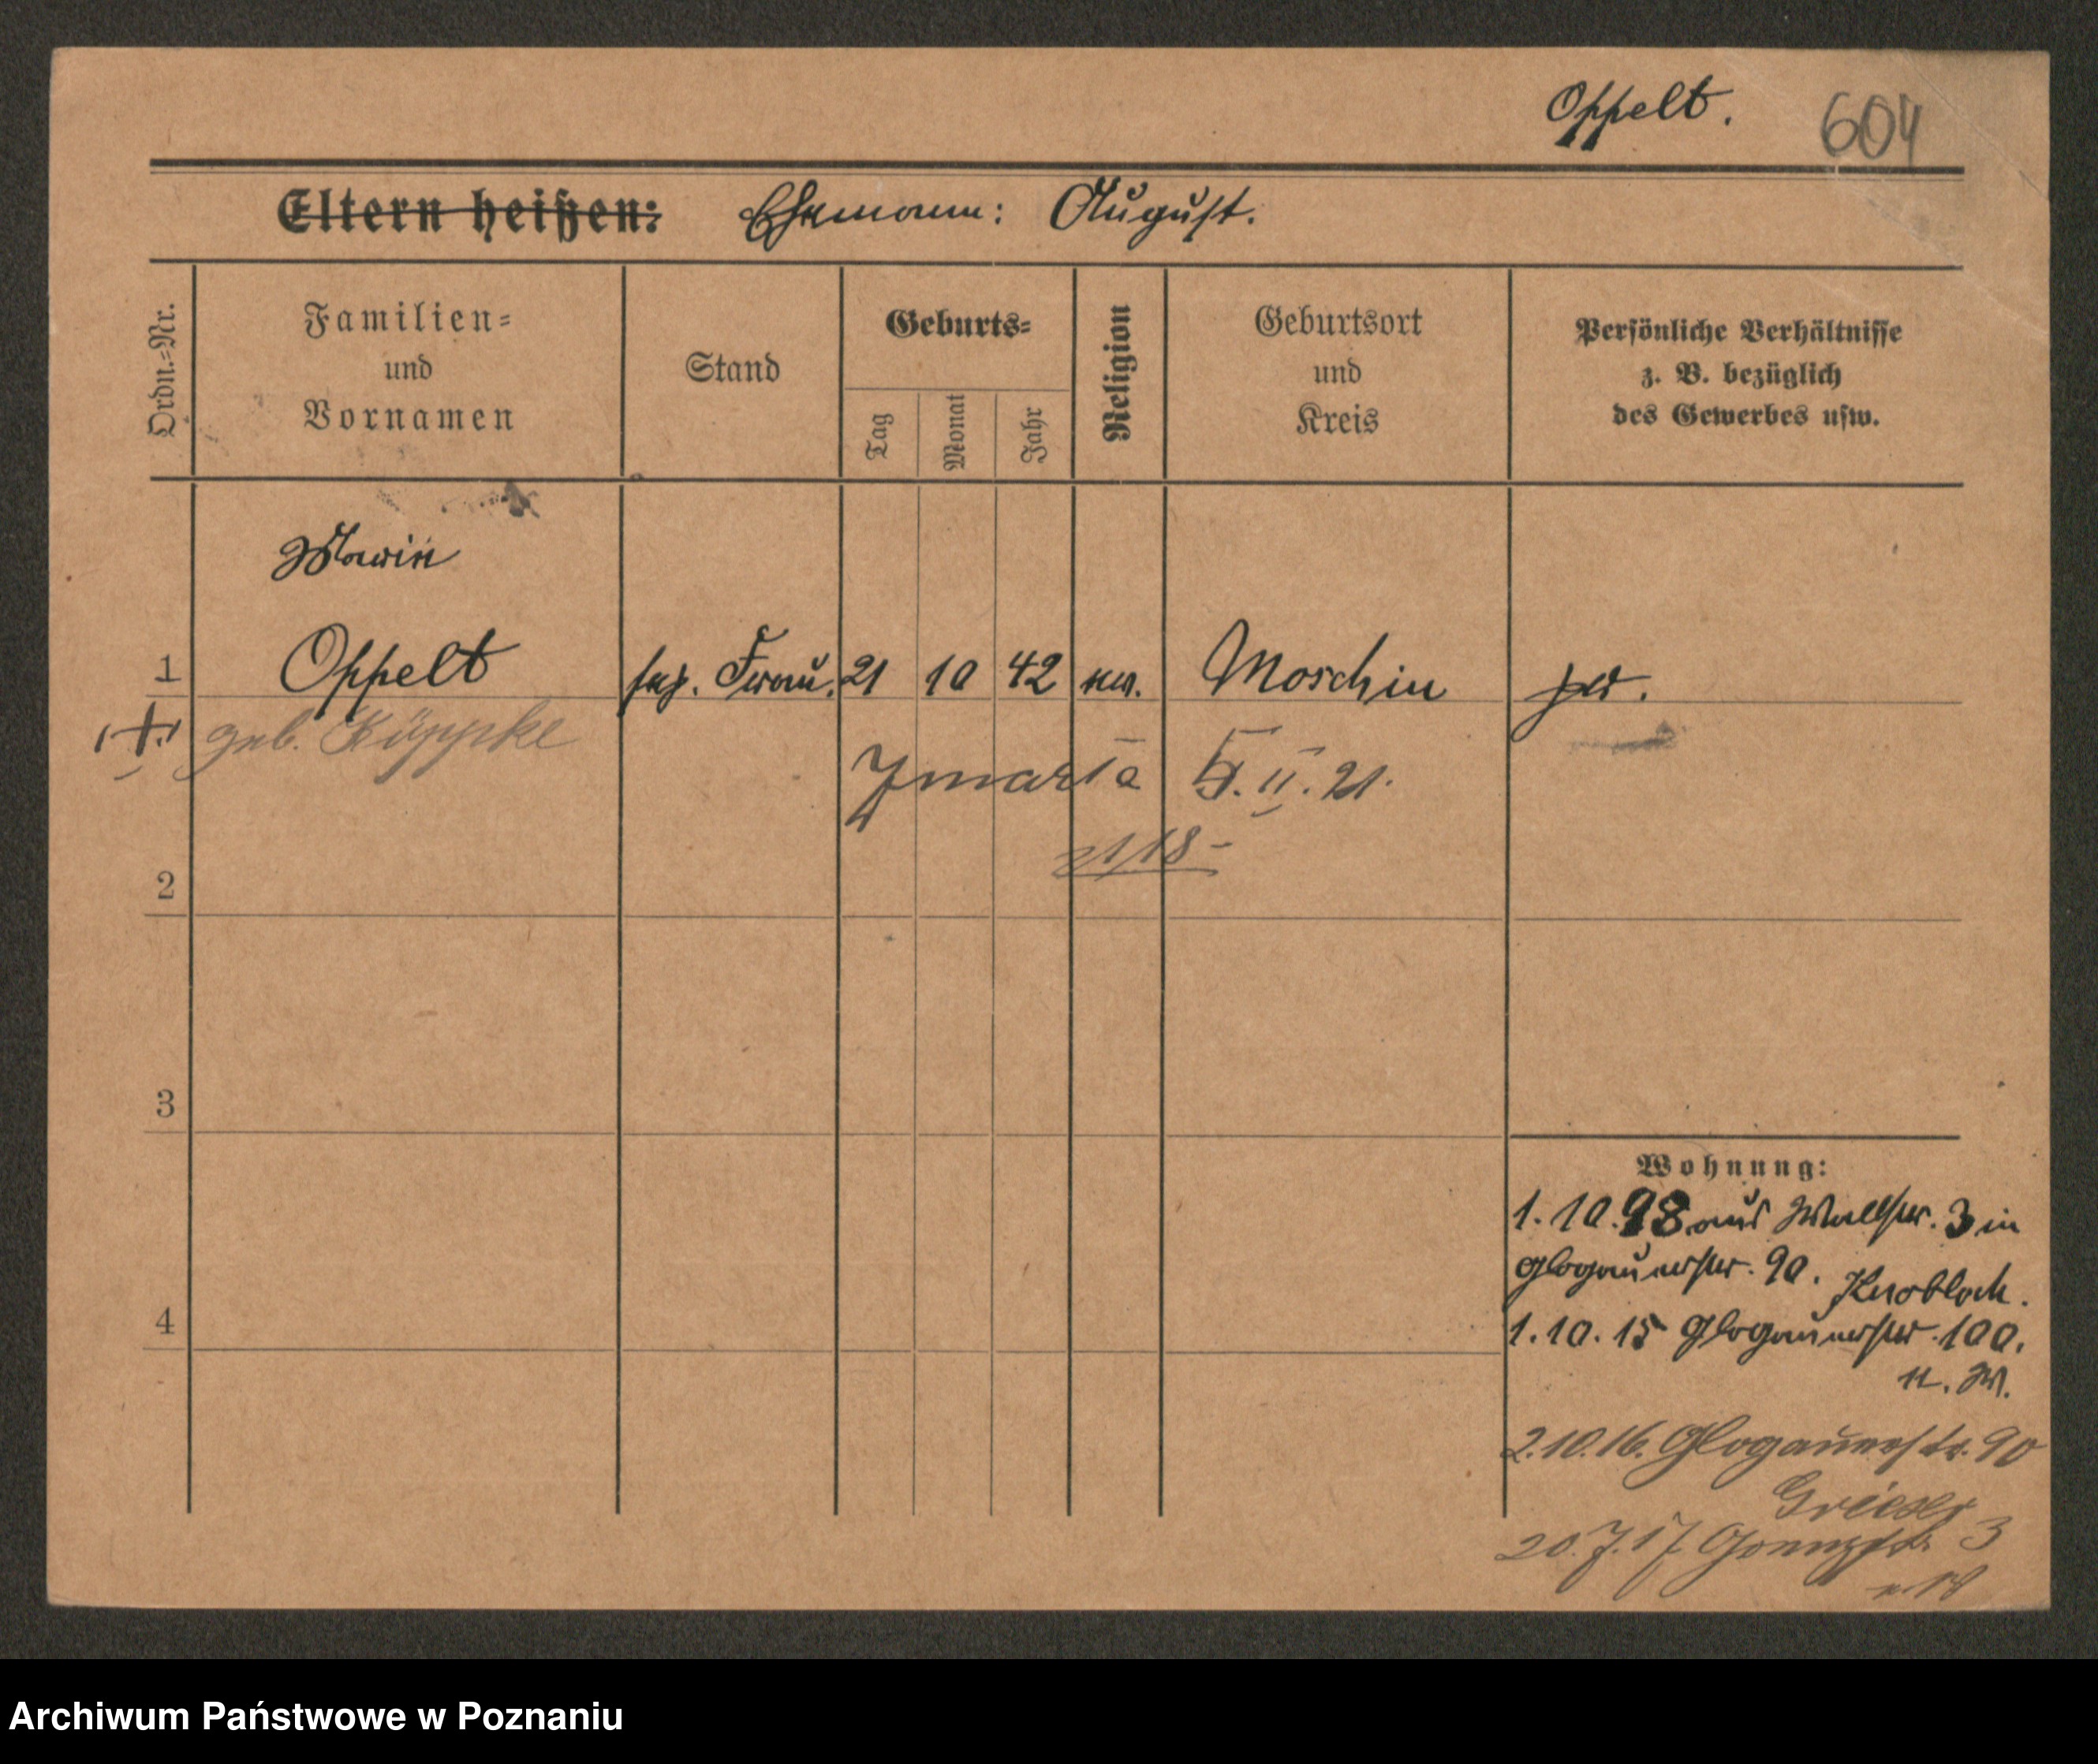 Oppelt.
604
Eltern heißen: Ehemann: August.
Ordn.-Nr.
Familien=
und
Vornamen
Stand
Geburts=
Tag
Monat
Jahr
Religion
Geburtsort
und
Kreis
Persönliche Verhältnisse
z. B. bezüglich
des Gewerbes usw.
1 Oppelt Frau. 21 10 42 Moschin
geb. Köppke
zmarła 5. II. 21.
2
3
4
Wohnung:
1. 10. 98 aus Wallstr. 3 in
Glogauerstr. 90. Knobloch.
1. 10. 15 Glogauerstr. 100.
2. 10. 16. Glogauerstr. 90
20. 7. 17 3
Archiwum Państwowe w Poznaniu